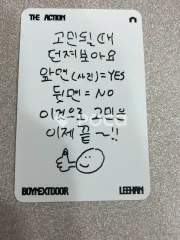 THE ACTION
고민될 때
던져보아요
앞면(사진)=YES
뒷면 = NO
이걸으로 고민은
이제 끝~!!
BOYNEXTDOOR LEEHAN